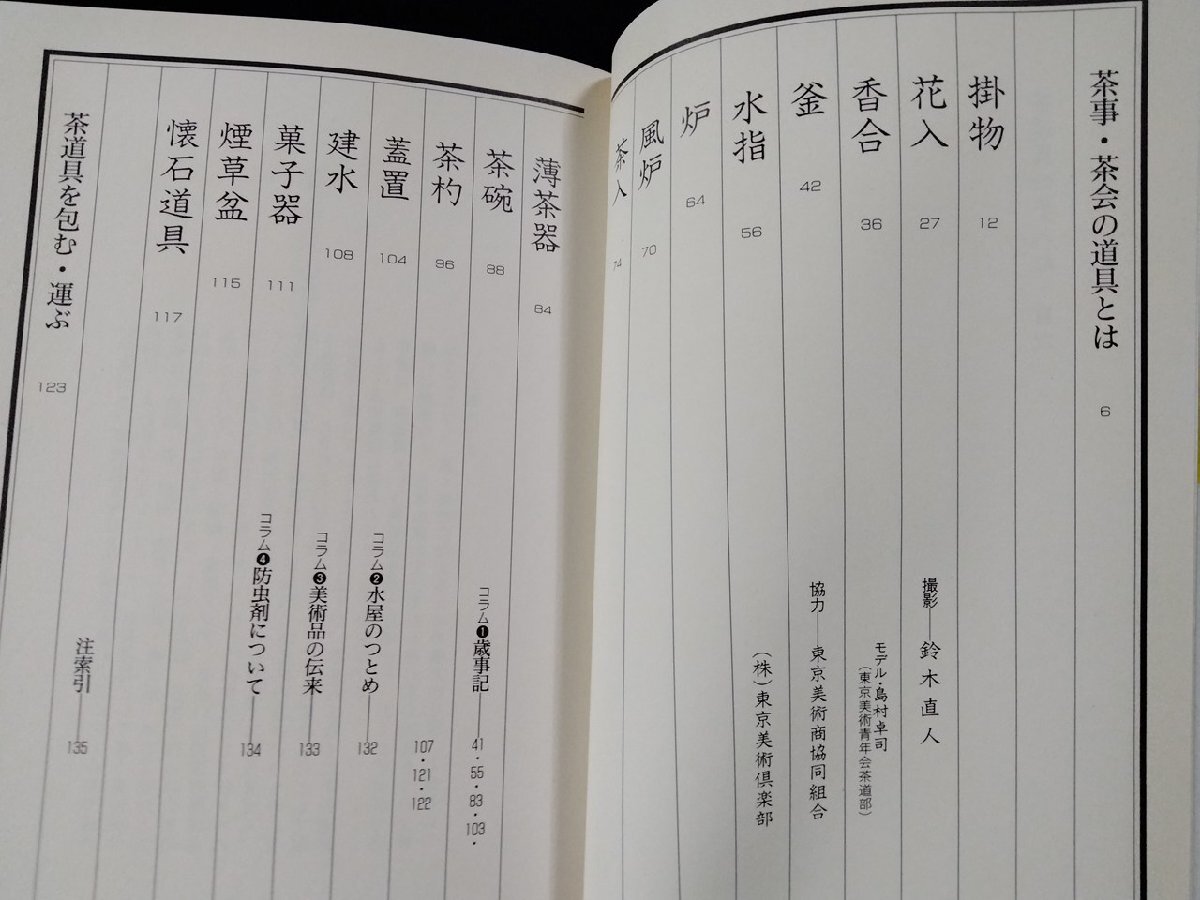 茶事・茶会の道具とは 6
掛物 12
花入 27
香合 36
釜 42
水指 56
炉 64
風炉 70
茶入 74
撮影——鈴木直人
モデル・島村卓司
(東京美術青年会茶道部)
協力——東京美術商協同組合
(株)東京美術倶楽部
薄茶器 84
茶碗 88
茶杓 96
蓋置 104
建水 108
菓子器 111
煙草盆 115
懐石道具 117
茶道具を包む・運ぶ 123
コラム❶歳事記——41・55・83・103・
107・121・122
コラム❷水屋のつとめ——132
コラム❸美術品の伝来——133
コラム❹防虫剤について——134
注索引——135